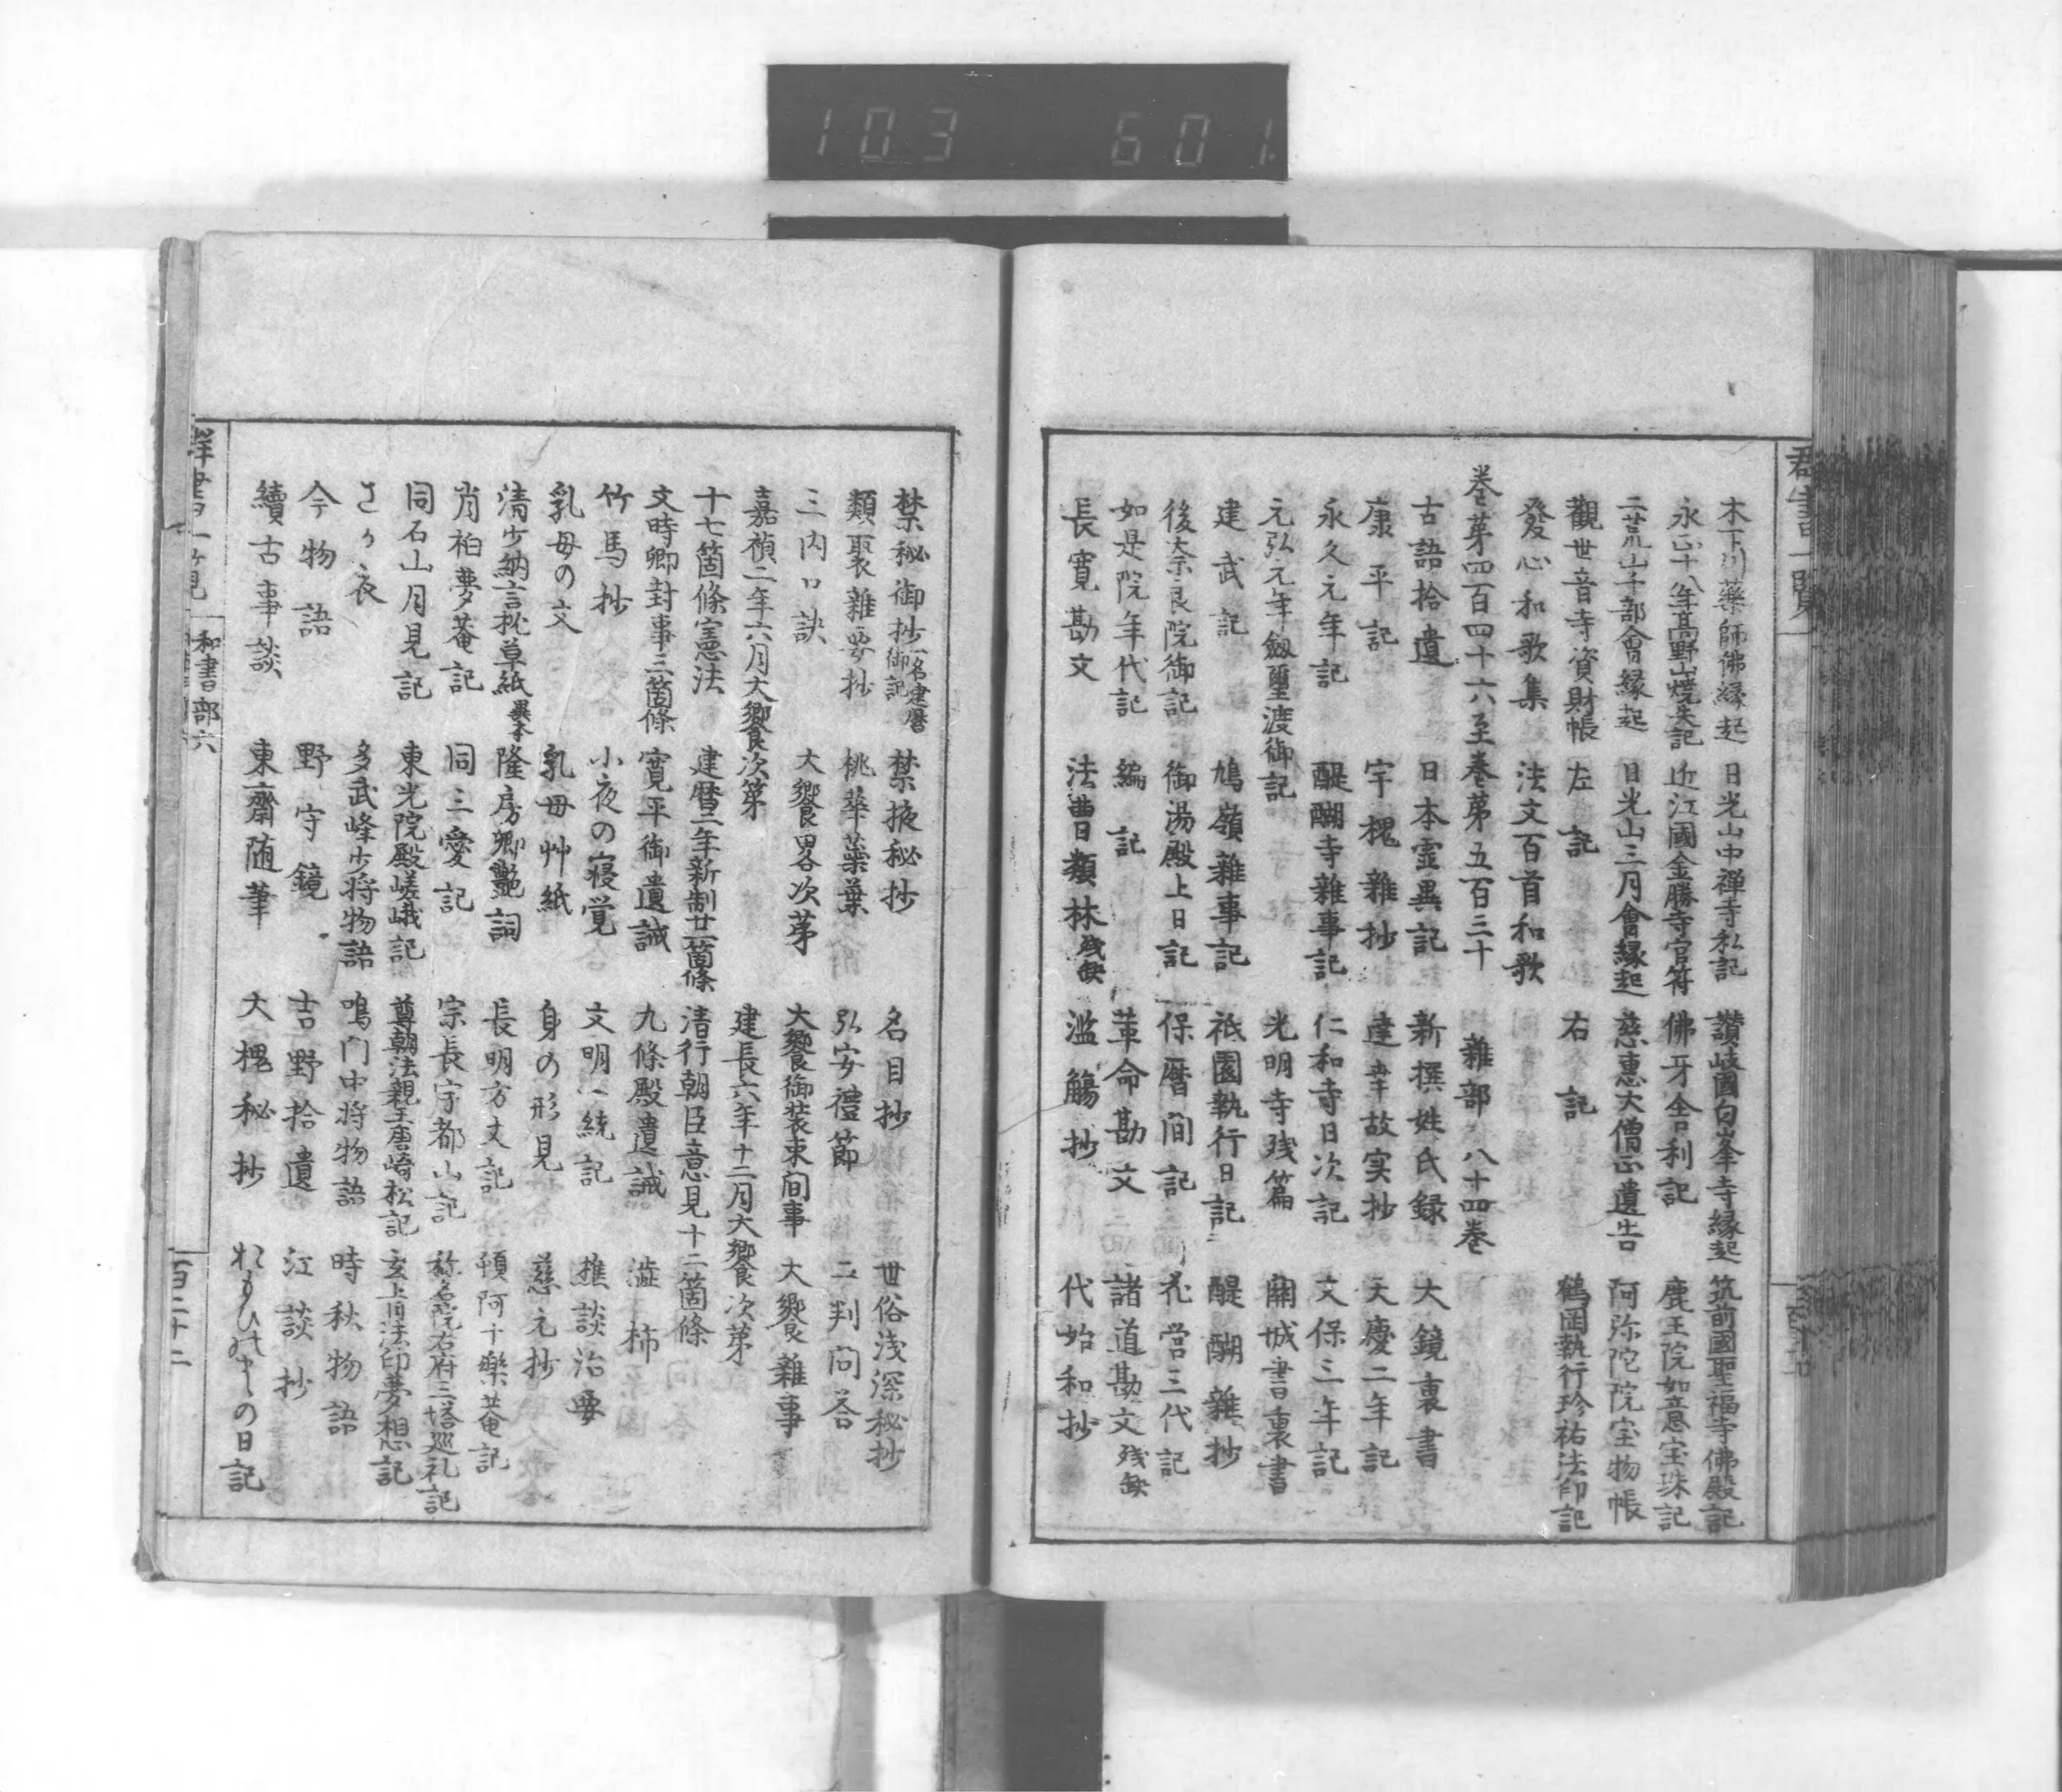 103 601
群書一覧
木下川藥師佛縁起 日光山中禅寺私記 讃岐國白峯寺縁起 筑前國聖福寺佛殿記
永正十八年高野山焼失記 近江國金勝寺官符 佛牙舎利記 鹿王院如意宝珠記
二荒山千部會縁起 日光山三月會縁起 慈惠大僧正遺告 阿弥陀院宝物帳
觀世音寺資財帳 左記 右記 鶴岡執行珍祐法印記
發心和歌集 法文百首和歌
巻第四百四十六至巻第五百三十 雜部 八十四巻
古語拾遺 日本霊異記 新撰姓氏録 大鏡裏書
康平記 宇槐雜抄 達幸故実抄 天慶二年記
永久元年記 醍醐寺雜事記 仁和寺日次記 文保三年記
元弘元年劔璽渡御記 光明寺残篇 關城書裏書
建武記 鳩嶺雜事記 祇園執行日記 醍醐雜抄
後奈良院御記 御湯殿上日記 保暦間記 花営三代記
如是院年代記 編記 革命勘文 諸道勘文残缺
長寛勘文 法曹類林残缺 濫觴抄 代始和抄
禁秘御抄一名建暦御記 禁掖秘抄 名目抄 世俗浅深秘抄
類聚雜要抄 桃華蘂葉 弘安禮節 二判問答
三内口訣 大饗畧次第 大饗御装束间事 大饗雜事
嘉禎二年六月大饗次第 建長六年十二月大饗次第
十七箇條憲法 建暦二年新制廿一箇條 清行朝臣意見十二箇條
文時卿封事三箇條 寛平御遺誡 九條殿遺誡 澁柿
竹馬抄 小夜の寝覚 文明一統記 樵談治要
乳母の文 乳母艸紙 身の形見 慈元抄
清少納言枕草紙異本 隆房卿艶詞 長明方丈記 頓阿十樂菴記
肖柏夢菴記 同三愛記 宗長宇都山記 称名院右府三塔巡礼記
同石山月見記 東光院殿嵯峨記 尊朝法親王唐崎松記 玄旨法印夢想記
さゝ衣 多武峰少将物語 鳴门中将物語 時秋物語
今物語 野守鏡 吉野拾遺 江談抄
續古事談 東齋随筆 大槐秘抄 の日記
群書一覧 和書部六 百二十二